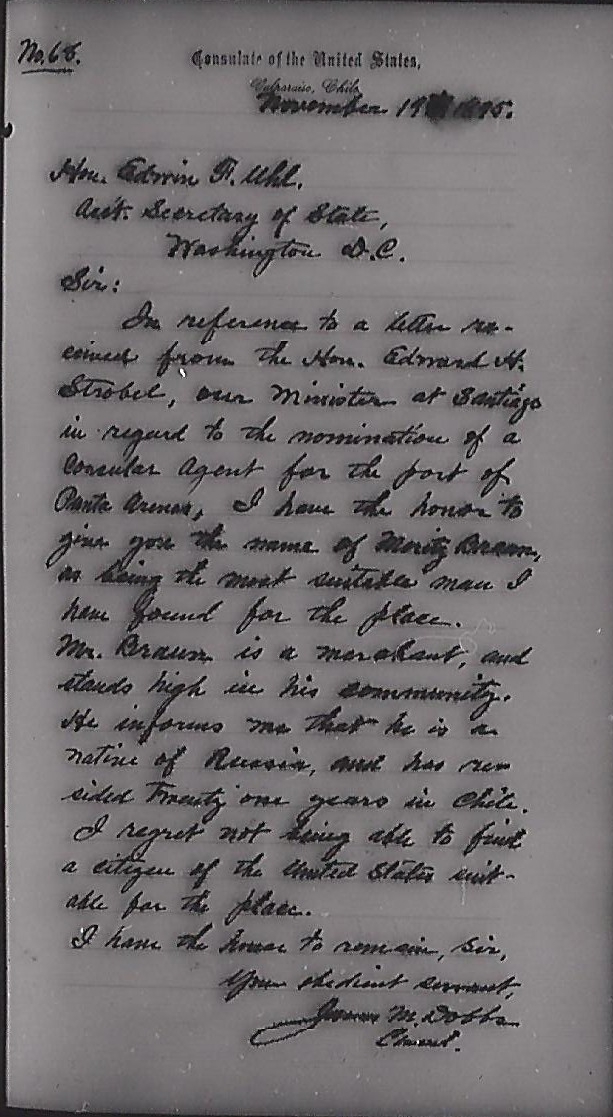 No. 68.
Consulate of the United States,
Valparaiso, Chile
November 19 1895.
Hon. Edwin F. Uhl.
Asst. Secretary of State,
Washington D.C.
Sir:
In reference to a letter re-
ceived from the Hon. Edward H.
Strobel, our Minister at Santiago
in regard to the nomination of a
Consular Agent for the port of
Punta Arenas, I have the honor to
give you the name of Moritz Braun,
as being the most suitable man I
have found for the place.
Mr. Braun is a merchant, and
stands high in his community.
He informs me that he is a
native of Russia, and has re-
sided Twenty one years in Chile.
I regret not being able to find
a citizen of the United States suit-
able for the place.
I have the honor to remain, Sir,
Your obedient servant,
James M. Dobbs
Consul.